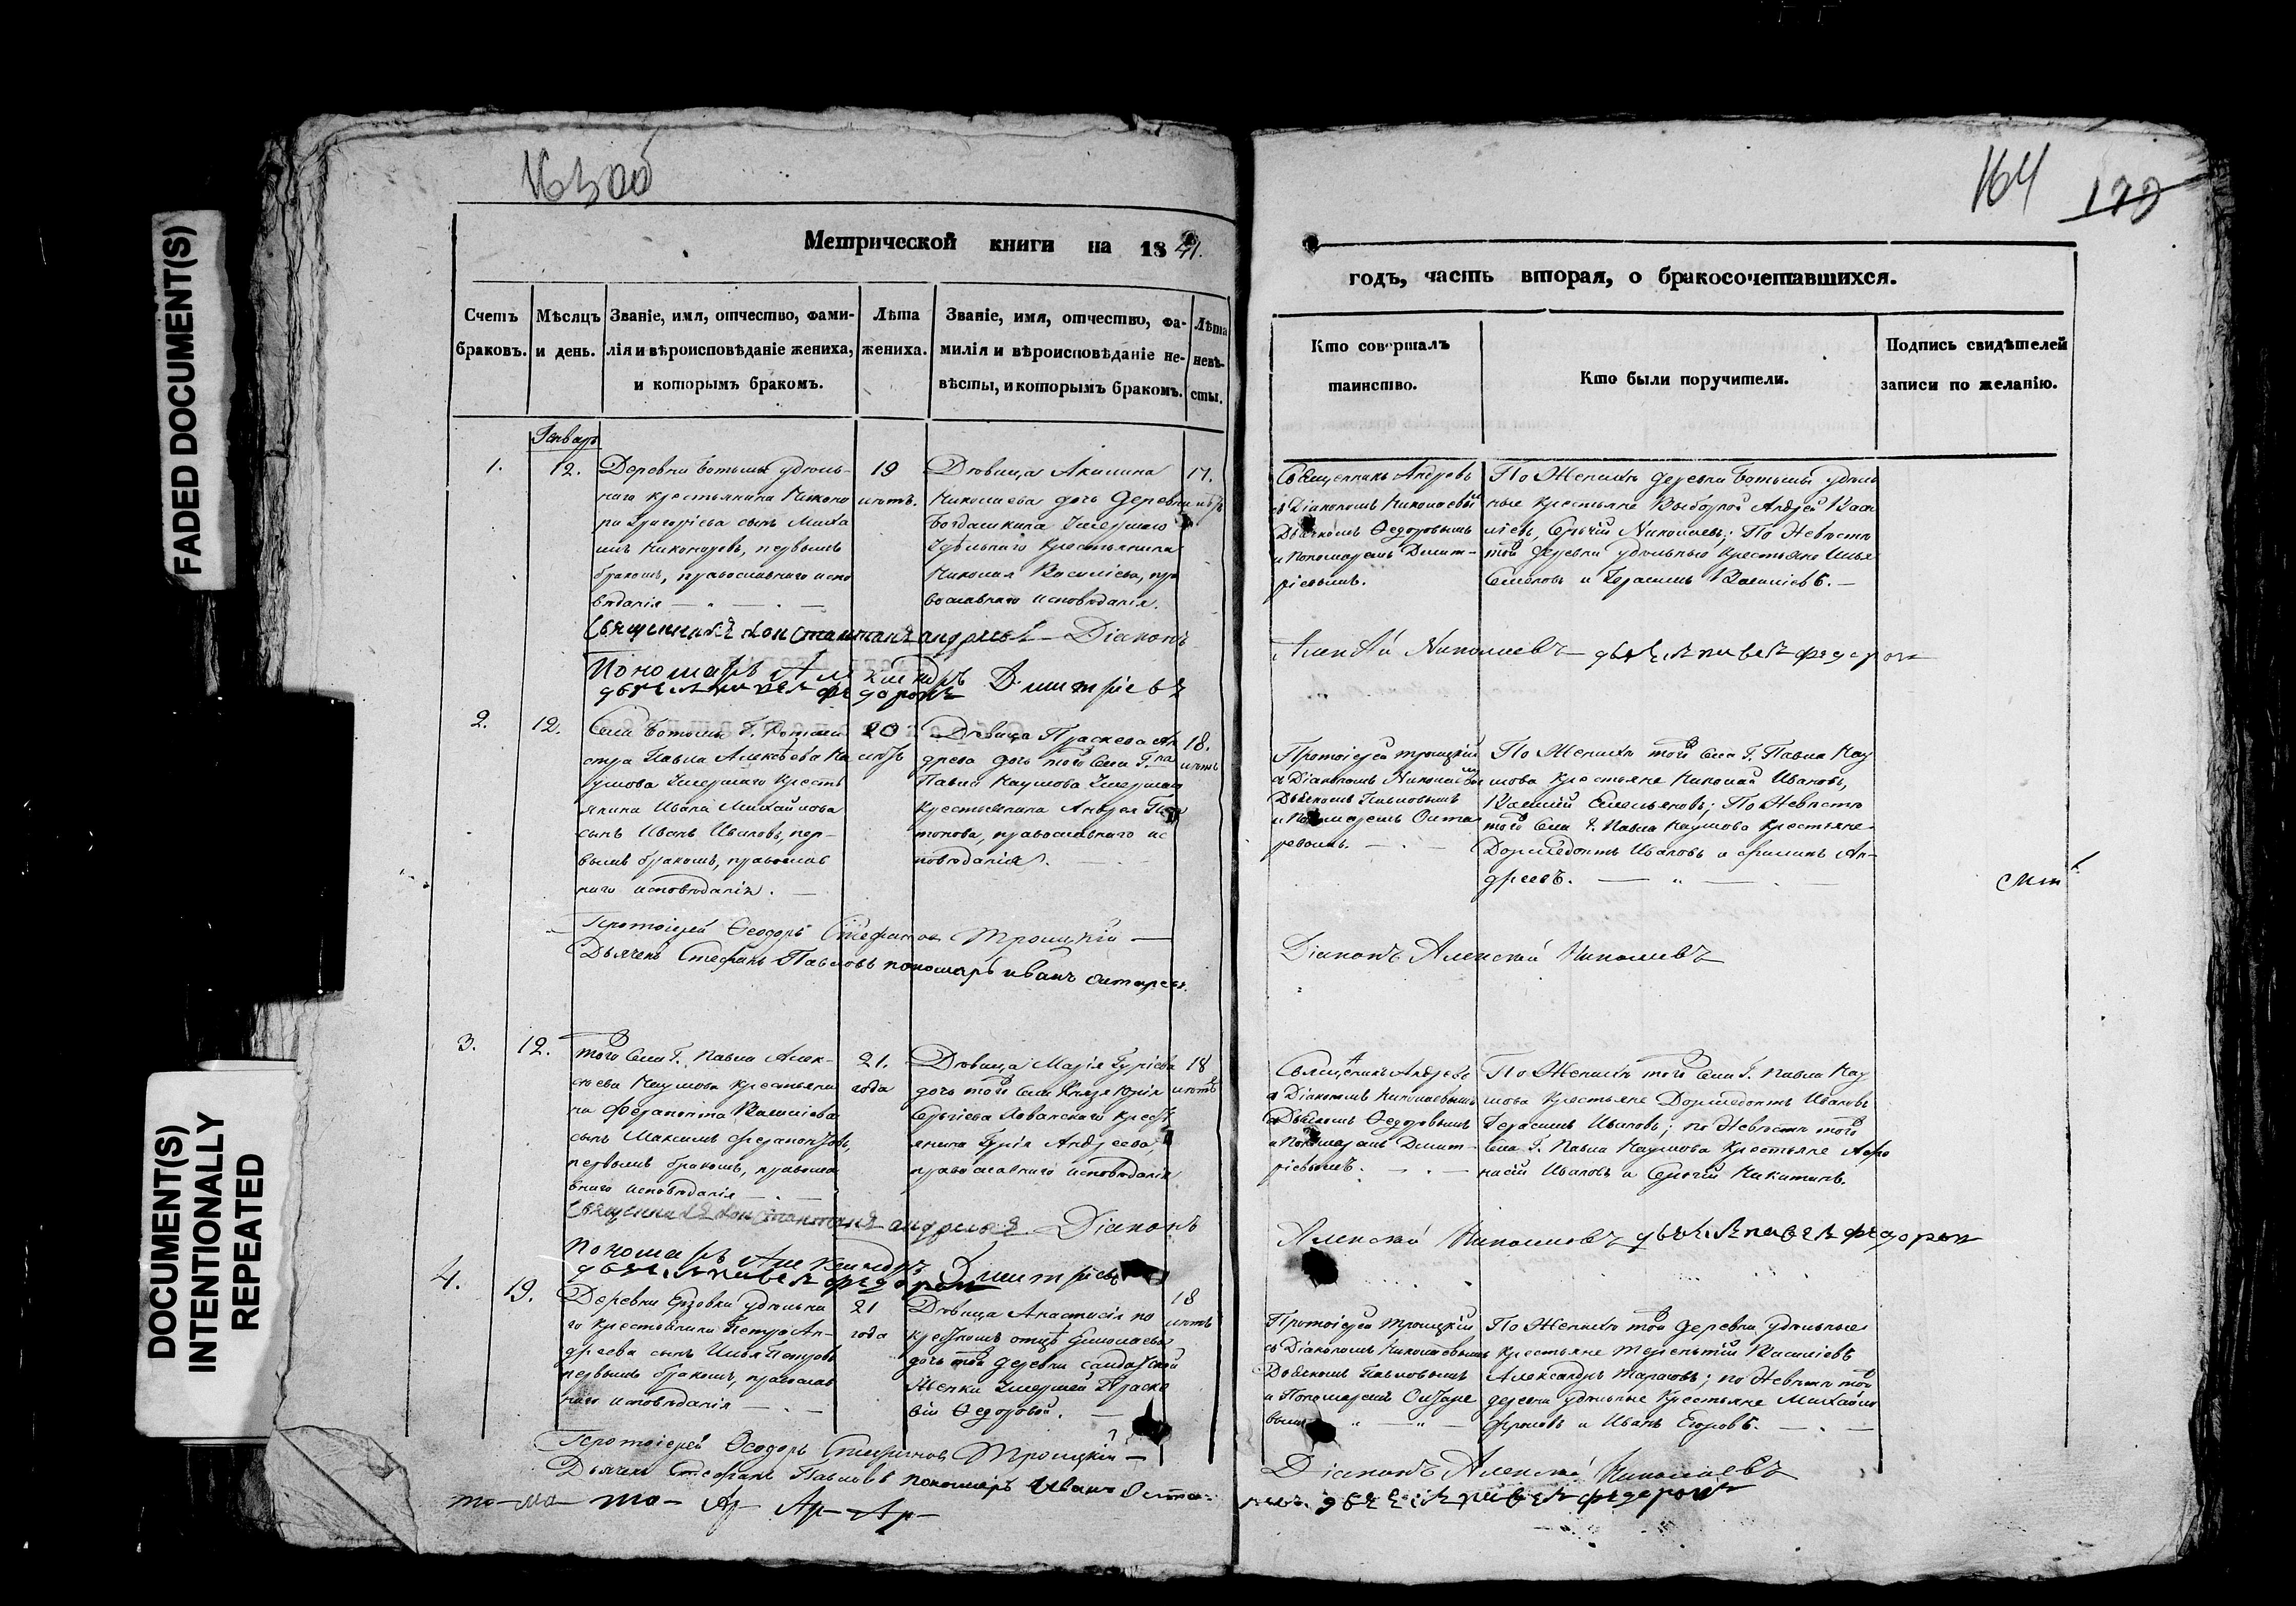 163 об
164
179
FADED DOCUMENT(S)
DOCUMENT(S)
INTENTIONALLY
REPEATED
Метрической книги на 1841.
годъ, часть вторая, о бракосочетавшихся.
Счетъ
браковъ.
Мѣсяцъ
и день.
Званіе, имя, отчество, фами-
лія и вѣроисповѣданіе жениха,
и которымъ бракомъ.
Лѣта
жениха.
Званіе, имя, отчество, фа-
милія и вѣроисповѣданіе не-
вѣсты, и которымъ бракомъ.
Лѣта
невѣ-
сты.
Кто совершалъ
таинство.
Кто были поручители.
Подпись свидѣтелей
записи по желанію.
Генварь
1.
12.
Деревни Ботьмы удѣль-
наго крестьянина Никоно
ра Григорьева сынъ Миха
илъ Никоноровъ, первымъ
бракомъ, православнаго испо
вѣданія
19
лѣтъ.
Дѣвица Акилина
Николаева дочь деревни
Богдашкина умершаго
Удѣльнаго крестьянина
Николая Василіева, пра
вославнаго исповѣданія.
17.
лѣтъ
Священникъ Андреевъ
съ Діакономъ Николаевымъ
Дьячкомъ Ѳедоровымъ
и Пономаремъ Дмит-
ріевымъ.
По Женихѣ деревни Ботьмы удѣль
ные крестьяне Выборной Андрей Васи
ліевъ, Сергѣй Николаевъ; По Невѣстѣ
той деревни удѣльные крестьяне Илья
Семеновъ и Герасимъ Василіевъ.
Священникъ Константинъ Андреевъ Діаконъ
Алексѣй Николаевъ дьячекъ Павелъ Федоровъ
Пономарь Александръ Дмитріевъ
2.
12.
Села Ботьмы Г. Ротми
стра Павла Алексѣева На
умова умершаго кресть
янина Ивана Михайлова
сынъ Иванъ Ивановъ, пер-
вымъ бракомъ, православ
наго исповѣданія.
20
лѣтъ
Дѣвица Праскева Ан
дреева дочь того Села Г.на
Павла Наумова умершаго
крестьянина Андрея Пла
тонова, православнаго ис
повѣданія.
18.
лѣтъ
Протоіерей Троицкій
съ Діакономъ Николаевымъ
Дьячкомъ Павловымъ
и Пономаремъ Онта
ревымъ.
По Женихѣ того Села Г. Павла Нау
мова крестьяне Николай Ивановъ,
Василій Емельяновъ; По Невѣстѣ
того Села Г. Павла Наумова крестьяне
Дормедонтъ Ивановъ и Филипъ Ан-
дреевъ.
Протоіерей Ѳеодоръ Стефановъ Троицкій
Діаконъ Алексѣй Николаевъ
Дьячекъ Стефанъ Павловъ пономарь Иванъ
3.
12.
того Села Г. Павла Алек-
сѣева Наумова крестьяни
на Ферапонта Василіева
сынъ Максимъ Ферапонтовъ,
первымъ бракомъ, правосла
внаго исповѣданія
21.
года
Дѣвица Марія Гуріева
дочь того Села Князя Юрія
Сергіева Хованскаго кресть
янина Гурія Андреева,
православнаго исповѣданія
18
лѣтъ
Священникъ Андреевъ
съ Діакономъ Николаевымъ
Дьячкомъ Ѳедоровымъ
и Пономаремъ Дмит-
ріевымъ.
По Женихѣ того Села Г. Павла Нау
мова крестьяне Дормедонтъ Ивановъ
Герасимъ Ивановъ; по Невѣстѣ того
Села Г. Павла Наумова крестьяне Афо
насій Ивановъ и Сергѣй Никитинъ.
Священникъ Константинъ Андреевъ Діаконъ
Алексѣй Николаевъ дьячекъ Павелъ Федоровъ
Пономарь Александръ Дмитріевъ
4.
19.
Деревни Ерзовки удѣльна
го крестьянина Петра Ан-
дреева сынъ Илья Петровъ
первымъ бракомъ, православ
наго исповѣданія
21
года
Дѣвица Анастасія по
крестномъ отцѣ
дочь той деревни солдатской
Женки умершей Праско
віи Ѳедоровой.
18
лѣтъ
Протоіерей Троицкій
съ Діакономъ Николаевымъ
Дьячкомъ Павловымъ
По Женихѣ той деревни удѣльные
крестьяне Терентій Василіевъ
Александръ Тарасовъ; по Невѣстѣ той
деревни удѣльные крестьяне Михайло
Фроловъ и Иванъ Егоровъ.
Протоіерей Ѳеодоръ Стефановъ Троицкій
Діаконъ Алексѣй Николаевъ
Дьячекъ Стефанъ Павловъ пономарь Иванъ
дьячекъ Павелъ Федоровъ